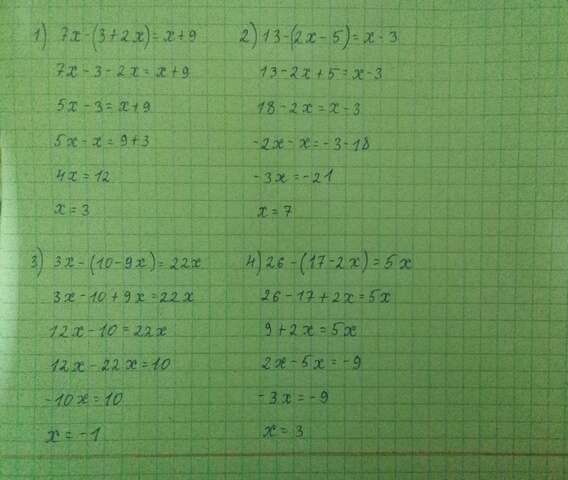 1) 7x-(3+2x)=x+9
7x-3-2x=x+9
5x-3=x+9
5x-x=9+3
4x=12
x=3
2) 13-(2x-5)=x-3
13-2x+5=x-3
18-2x=x-3
-2x-x=-3-18
-3x=-21
x=7
3) 3x-(10-9x)=22x
3x-10+9x=22x
12x-10=22x
12x-22x=10
-10x=10
x=-1
4) 26-(17-2x)=5x
26-17+2x=5x
9+2x=5x
2x-5x=-9
-3x=-9
x=3